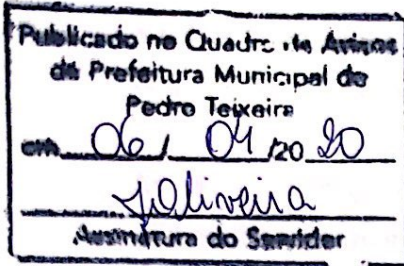 Publicado no Quadro de Avisos
da Prefeitura Municipal de
Pedro Teixeira
em 06 / 04 /20 20
Assinatura do Servidor